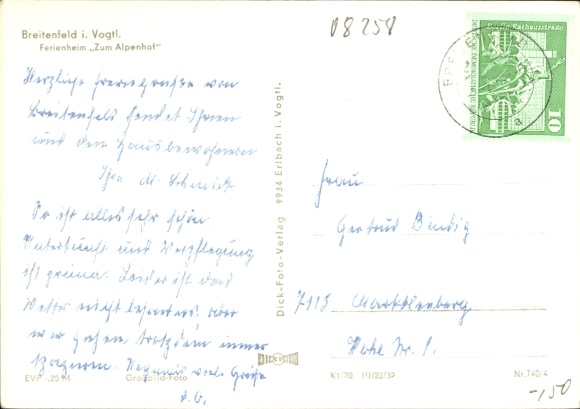 08258
Breitenfeld i. Vogtl.
Ferienheim „Zum Alpenhof"
Herzliche Feriengrüße von
Breitenfeld sendet Ihnen
und den Hausbewohnern
Ihre M. Schmidt
Es ist alles sehr schön
Unterkunft und Verpflegung
ist prima. Leider ist das
Wetter nicht besonders, aber
wir gehen trotzdem immer
spazieren. viele Grüße
d. O.
EVP -,25 M Großbild-Foto
Dick-Foto-Verlag 9934 Erlbach i. Vogtl.
DICK
Berlin, Rathausstraße
10
Frau
Gertrud Bindig
7113 Markkleeberg
Hohe Str. 1.
K1/70 Nr. 740/4
-,50